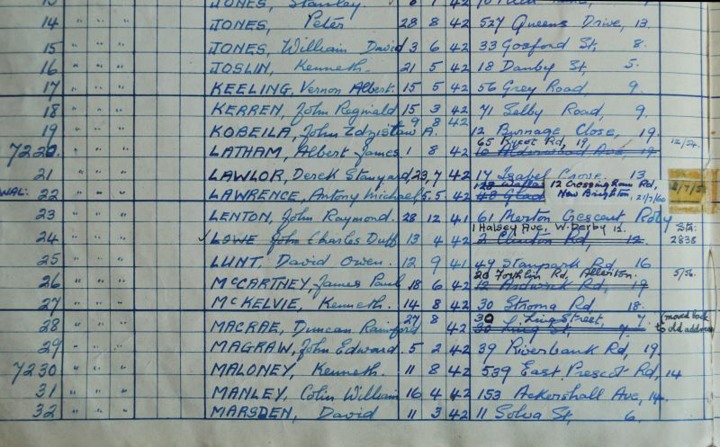 JONES, Stanley 6 1 42
14 " " " JONES, Peter 28 8 42 527 Queens Drive, 13.
15 " " " JONES, William David 3 6 42 33 Gosford St, 8.
16 " " " JOSLIN, Kenneth. 21 5 42 18 Danby St, 5.
17 " " " KEELING, Vernon Albert. 15 5 42 56 Grey Road, 9.
18 " " " KERREN, John Reginald 15 3 42 71 Selby Road, 9.
19 " " " KOBEILA, John A. 9 8 42 12 Burnage Close, 19.
65 Rd, 19,
7220. " " " LATHAM, Albert James 1 8 42 10 Alderwood Ave, 19 12/54.
21 " " " LAWLOR, Derek Stanyard, 23, 7 42 17 Isabel Grose. 13
12 Crossingham Rd,
WAL: 22 " " " LAWRENCE, Antony Michael 5, 5 42 48 New Brighton, 21/7/60
23 " " " LENTON, John Raymond. 28 12 41 61 Merton Crescent Roby
1 Halsey Ave, W. Derby 12.
24 " " " LOWE John Charles Duff 13 4 42 2 Clinton Rd, 12. 2838
25 " " " LUNT, David Owen. 12 9 41 49 Stanpark Rd, 16
20 Forthlin Rd, Allerton.
26 " " " McCARTNEY, James Paul 18 6 42 12 Ardwick Rd, 19 5/56.
27 " " " McKELVIE, Kenneth. 14 8 42 30 Stroma Rd 18.
27 8 30 King Street, 7 (moved back
28 " " " MACRAE, Duncan Rainford 42 30 King St, 7. to old address)
29 " " " MAGRAW, John Edward. 5 2 42 39 Riverbank Rd, 19.
7230 " " " MALONEY, Kenneth. 11 8 42 539 East Prescot Rd, 14
31 " " " MANLEY, Colin William 16 4 42 153 Ackershall Ave, 14.
32 " " " MARSDEN, David 11 3 42 11 Solva St, 6.